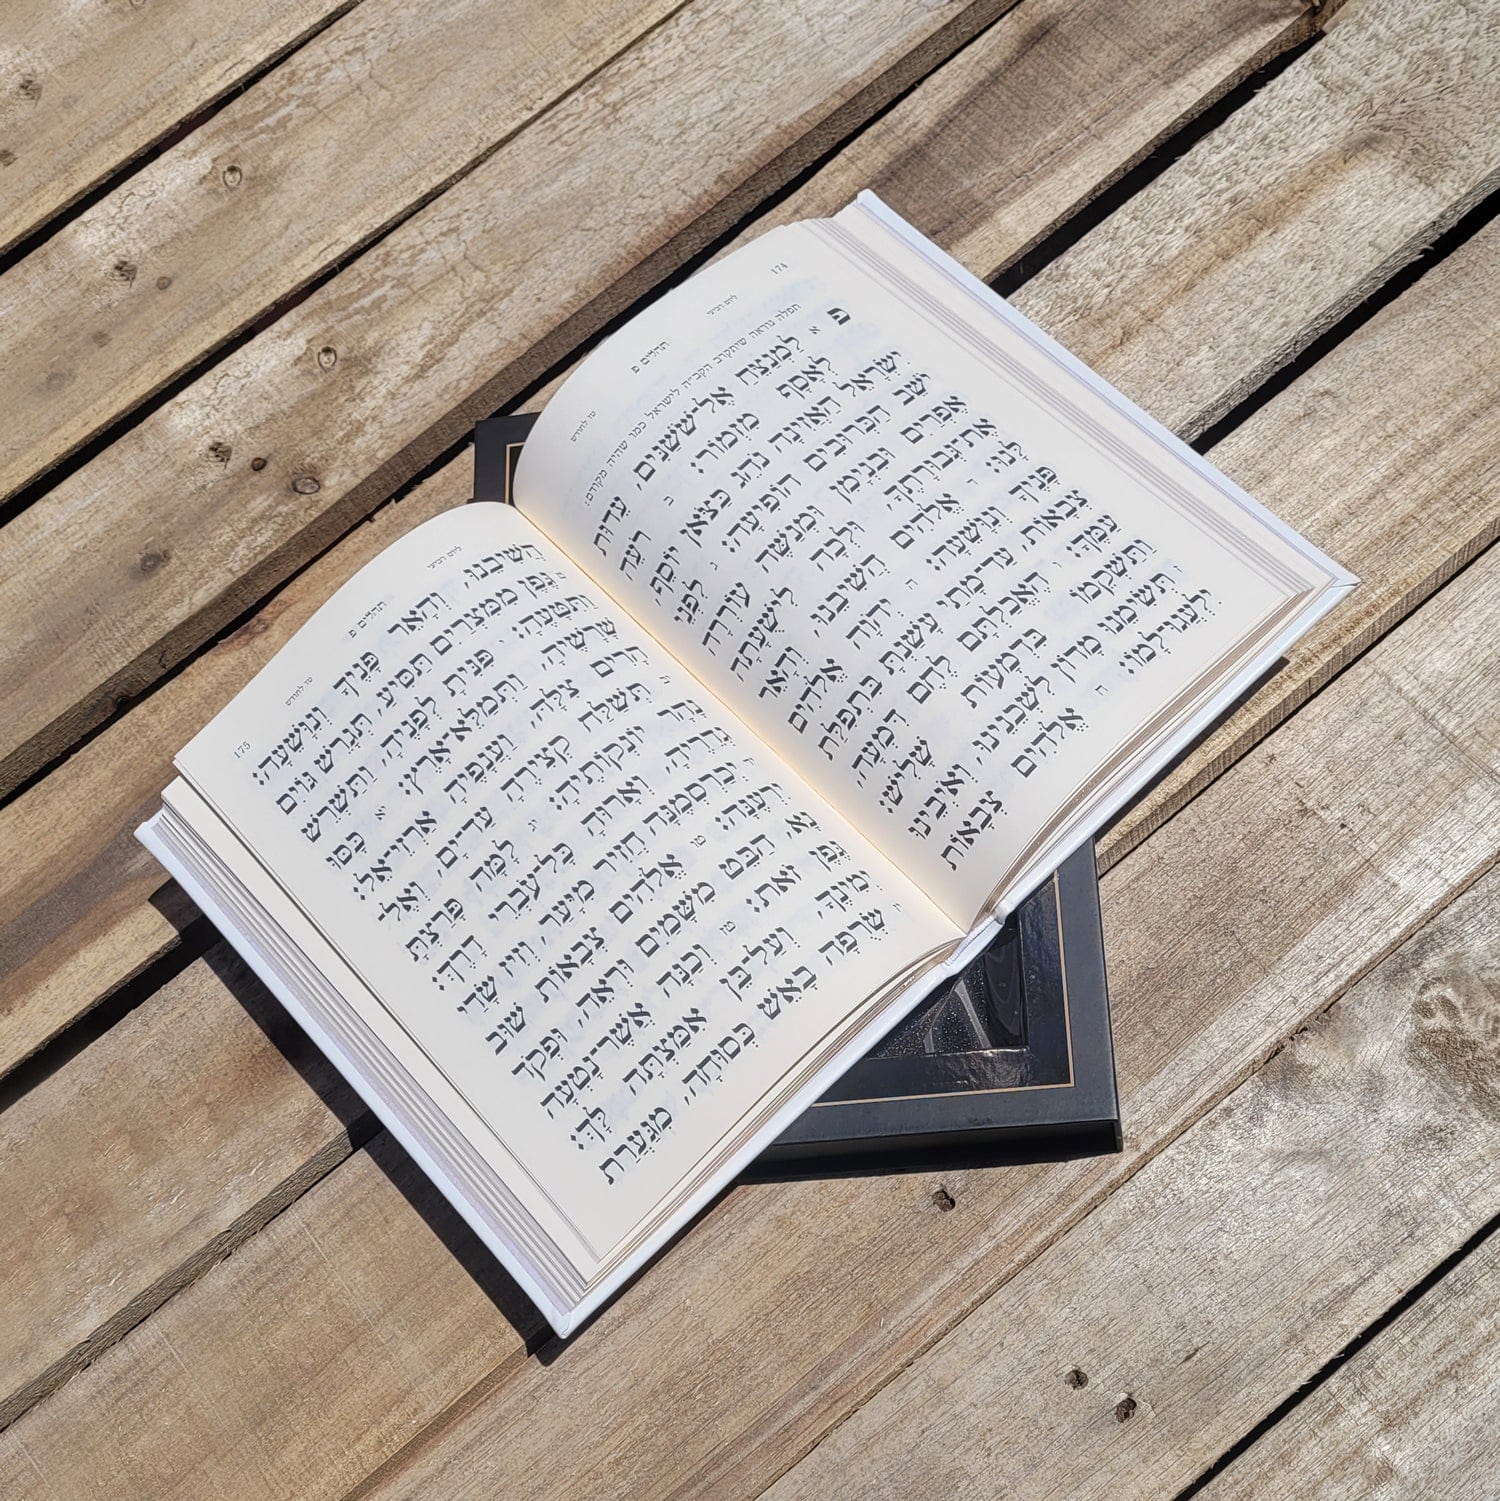 174 ליום רביעי תהלים פ טו לחודש
תפלה נוראה שיתקרב הקב״ה לישראל כמו שהיה מקודם:
פ
א לַמְנַצֵּחַ אֶל־שֹׁשַׁנִּים, עֵדוּת
לְאָסָף מִזְמוֹר: ב רֹעֵה
יִשְׂרָאֵל הַאֲזִינָה נֹהֵג כַּצֹּאן יוֹסֵף,
יֹשֵׁב הַכְּרוּבִים הוֹפִיעָה: ג לִפְנֵי
אֶפְרַיִם וּבִנְיָמִן וּמְנַשֶּׁה עוֹרְרָה
אֶת־גְּבוּרָתֶךָ וּלְכָה לִישֻׁעָתָה
לָּנוּ: ד אֱלֹהִים הֲשִׁיבֵנוּ, וְהָאֵר
פָּנֶיךָ וְנִוָּשֵׁעָה: ה יְהוָה אֱלֹהִים
צְבָאוֹת, עַד־מָתַי עָשַׁנְתָּ בִּתְפִלַּת
עַמֶּךָ: ו הֶאֱכַלְתָּם לֶחֶם דִּמְעָה,
וַתַּשְׁקֵמוֹ בִּדְמָעוֹת שָׁלִישׁ:
ז תְּשִׂימֵנוּ מָדוֹן לִשְׁכֵנֵינוּ, וְאֹיְבֵינוּ
יִלְעֲגוּ־לָמוֹ: ח אֱלֹהִים צְבָאוֹת
ליום רביעי תהלים פ טו לחודש 175
הֲשִׁיבֵנוּ, וְהָאֵר פָּנֶיךָ וְנִוָּשֵׁעָה:
ט גֶּפֶן מִמִּצְרַיִם תַּסִּיעַ, תְּגָרֵשׁ גּוֹיִם
וַתִּטָּעֶהָ: י פִּנִּיתָ לְפָנֶיהָ, וַתַּשְׁרֵשׁ
שָׁרָשֶׁיהָ, וַתְּמַלֵּא־אָרֶץ: יא כָּסּוּ
הָרִים צִלָּהּ, וַעֲנָפֶיהָ אַרְזֵי־אֵל:
יב תְּשַׁלַּח קְצִירֶיהָ עַד־יָם, וְאֶל
נָהָר יוֹנְקוֹתֶיהָ: יג לָמָּה פָּרַצְתָּ
גְדֵרֶיהָ, וְאָרוּהָ כָּל־עֹבְרֵי דָרֶךְ:
יד יְכַרְסְמֶנָּה חֲזִיר מִיָּעַר, וְזִיז שָׂדַי
יִרְעֶנָּה: טו אֱלֹהִים צְבָאוֹת שׁוּב
נָא הַבֵּט מִשָּׁמַיִם וּרְאֵה, וּפְקֹד
גֶּפֶן זֹאת: טז וְכַנָּה אֲשֶׁר־נָטְעָה
יְמִינֶךָ, וְעַל־בֵּן אִמַּצְתָּה לָּךְ:
יז שְׂרֻפָה בָאֵשׁ כְּסוּחָה, מִגַּעֲרַת